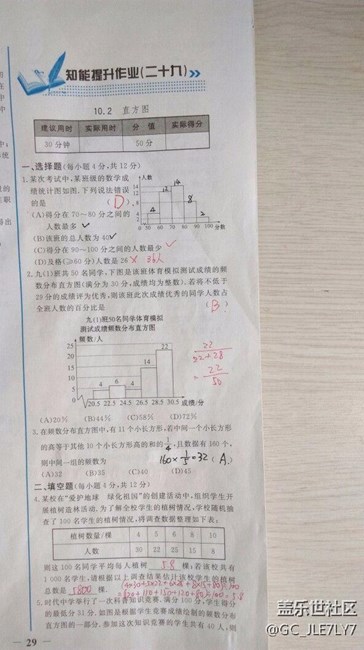 知能提升作业(二十九)
10.2 直方图
建议用时 实际用时 分 值 实际得分
30分钟 50分
一、选择题(每小题4分,共12分)
1.某次考试中,某班级的数学成
绩统计图如图.下列说法错误
的是 ( D )
(A)得分在70~80分之间的
人数最多 ✓
(B)该班的总人数为40 ✓
(C)得分在90~100分之间的人数最少 ✓
(D)及格(≥60分)人数是26 × 36人
人数
14
12
10
8
6
4
2
4
12
14
8
2
50 60 70 80 90 100 分数
2.九(1)班共50名同学,下图是该班体育模拟测试成绩的频
数分布直方图(满分为30分,成绩均为整数).若将不低于
29分的成绩评为优秀,则该班此次成绩优秀的同学人数占
全班人数的百分比是 ( B )
九(1)班50名同学体育模拟
测试成绩频数分布直方图
频数/人
25
20
15
10
5
0
4
6
4
14
22
20.5 22.5 24.5 26.5 28.5 30.5 成绩/分
22
22+28
=22
50
(A)20% (B)44% (C)58% (D)72%
3.在频数分布直方图中,有11个小长方形,若中间一个小长方形
的高等于其他10个小长方形高的和的1/4,且数据有160个,
则中间一组的频数为 160×1/5=32 ( A )
(A)32 (B)35 (C)40 (D)45
二、填空题(每小题4分,共12分)
4.某校在“爱护地球 绿化祖国”的创建活动中,组织学生开
展植树造林活动.为了解全校学生的植树情况,学校随机抽
查了100名学生的植树情况,将调查数据整理如下表:
植树数量/棵 4 5 6 8 10
人数 30 22 25 15 8
则这100名同学平均每人植树 5.8 棵;若该校共有
1 000名学生,请根据以上调查结果估计该校学生的植树
总数是 5800 棵.
5.时代中学举行了一次科普知识竞赛.满分100分,学生得分
的最低分31分.如图是根据学生竞赛成绩绘制的频数分布
直方图的一部分.参加这次知识竞赛的学生共有40人,则
29
盖乐世社区
@GC_JLE7LY7